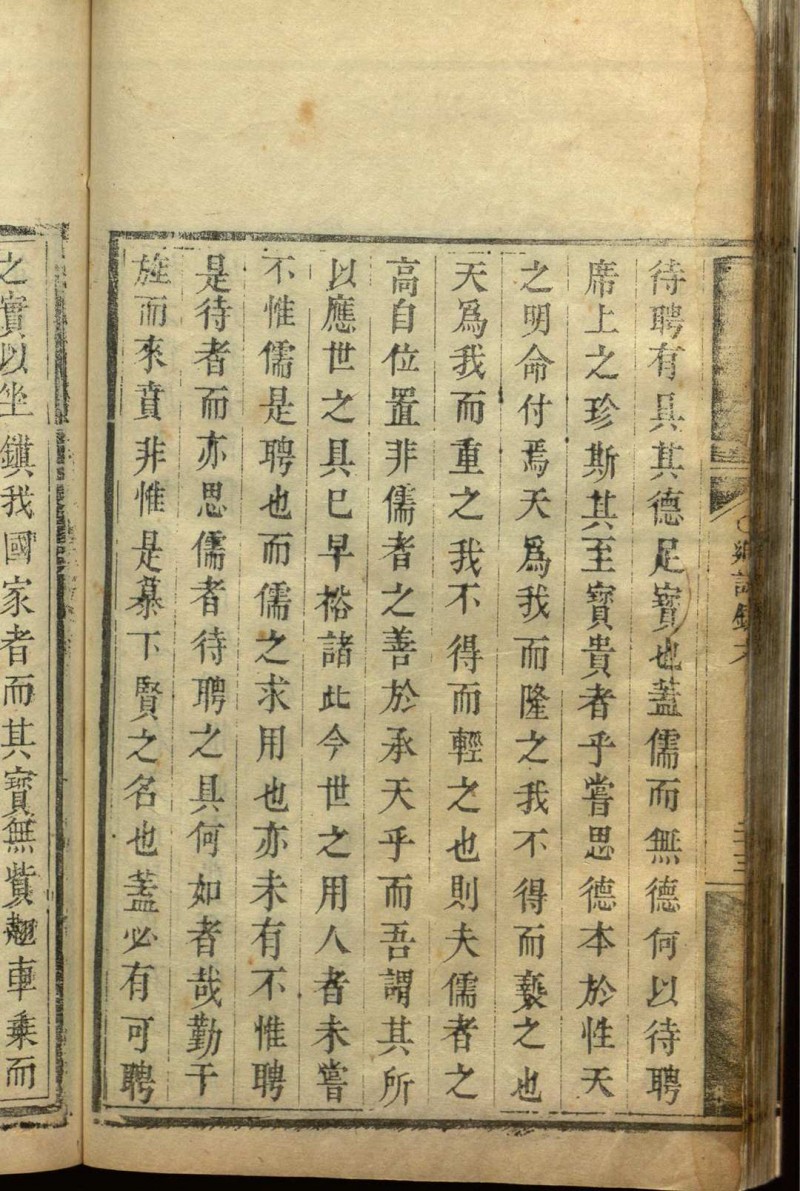 待聘有具其德足寳也蓋儒而無德何以待聘
席上之珍斯其至寳貴者乎嘗思德本於性天
之明命付焉天爲我而隆之我不得而褻之也
天爲我而重之我不得而輕之也則夫儒者之
高自位置非儒者之善於承天乎而吾謂其所
以應世之具已早裕諸此今世之用人者未嘗
不惟儒是聘也而儒之求用也亦未有不惟聘
是待者而亦思儒者待聘之具何如者哉勤干
旌而來賁非惟是慕下賢之名也蓋必有可聘
之實以坐鎭我國家者而其寳無貲翹車乗而